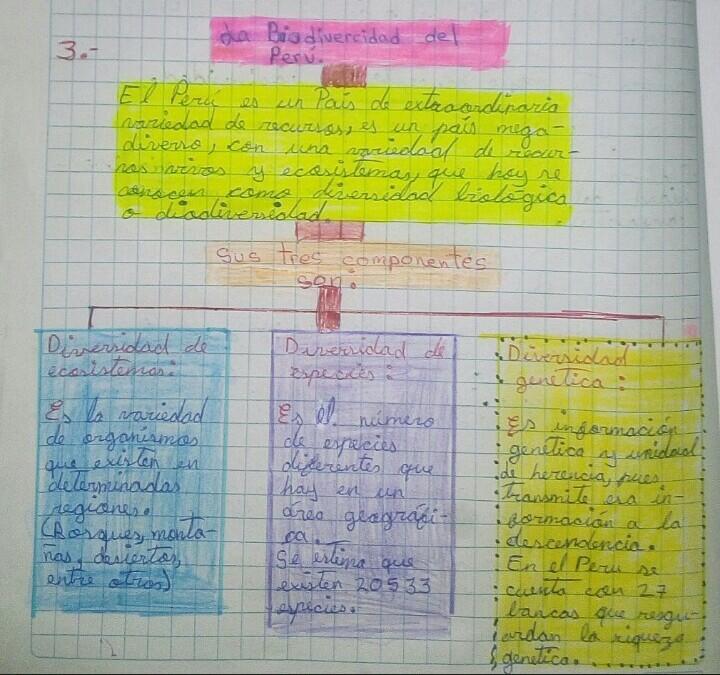 3.-
La Biodivercidad del
Perú.
El Perú es un País de extraordinaria
variedad de recursos, es un país mega-
diverso, con una variedad de recur-
sos vivos y ecosistemas, que hoy se
conocen como diversidad biológica
o diodiversidad.
Sus tres componentes
son:
Diversidad de
ecosistemas:
Es la variedad
de organismos
que existen en
determinadas
regiones.
(Bosques, monta-
ñas, desiertos,
entre otros)
Diversidad de
especies:
Es el número
de especies
diferentes que
hay en un
área geográfi-
ca.
Se estima que
existen 20533
especies.
Diversidad
genetica:
Es información
genética y unidad
de herencia, pues
transmite esa in-
formación a la
descendencia.
En el Peru se
cuenta con 27
bancas que resgu-
ardan la riqueza
genetica.